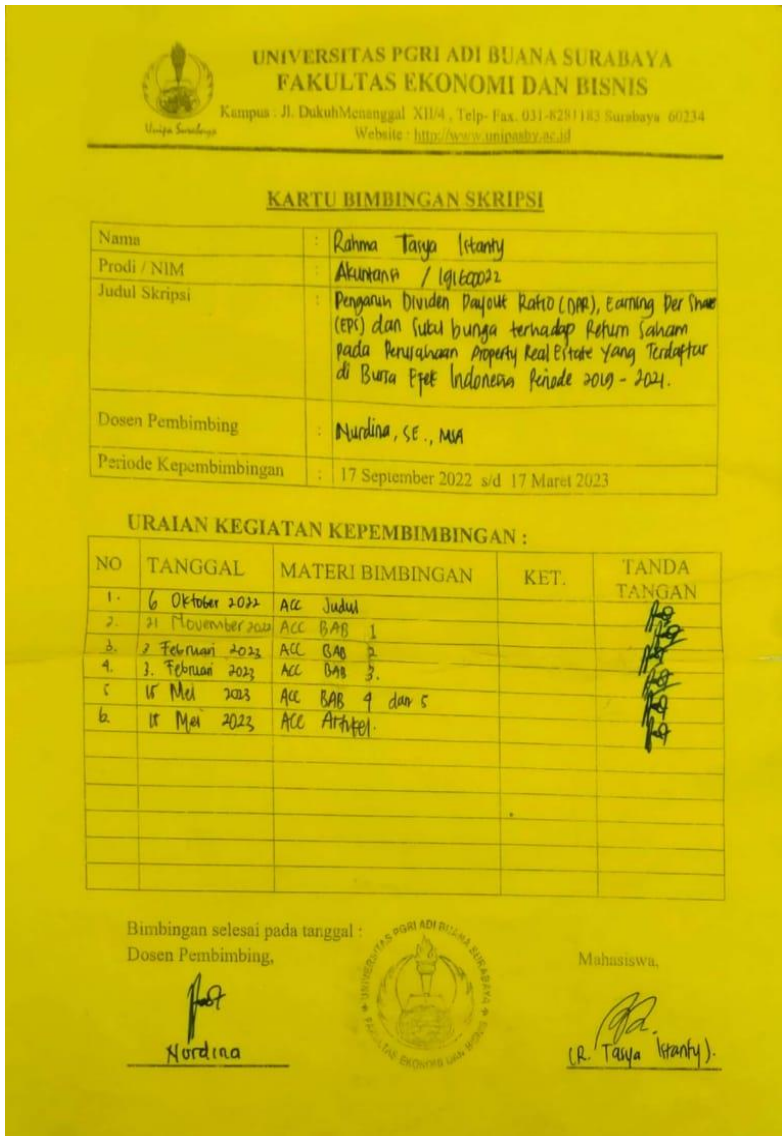 UNIVERSITAS PGRI ADI BUANA SURABAYA
FAKULTAS EKONOMI DAN BISNIS
Kampus : Jl. DukuhMenanggal XII/4 , Telp- Fax. 031-8281183 Surabaya 60234
Website : http://www.unipasby.ac.id
Unipa Surabaya
KARTU BIMBINGAN SKRIPSI
Nama : Rahma Tasya Istanty
Prodi / NIM : Akuntansi / 191600022
Judul Skripsi : Pengaruh Dividen Payout Ratio (DPR), Earning Per Share
(EPS) dan Suku bunga terhadap Return Saham
pada Perusahaan Property Real Estate Yang Terdaftar
di Bursa Efek Indonesia Periode 2019 - 2021.
Dosen Pembimbing : Nurdina, SE., MSA
Periode Kepembimbingan : 17 September 2022 s/d 17 Maret 2023
URAIAN KEGIATAN KEPEMBIMBINGAN :
NO TANGGAL MATERI BIMBINGAN KET. TANDA TANGAN
1. 6 Oktober 2022 ACC Judul
2. 21 November 2022 ACC BAB 1
3. 2 Februari 2023 ACC BAB 2
4. 3. Februari 2023 ACC BAB 3.
5 15 Mei 2023 ACC BAB 4 dan 5
6. Mei 2023 ACC Artikel.
Bimbingan selesai pada tanggal :
Dosen Pembimbing, Mahasiswa,
UNIVERSITAS PGRI ADI BUANA SURABAYA
FAKULTAS EKONOMI DAN BISNIS
Nurdina (R. Tasya Istanty).